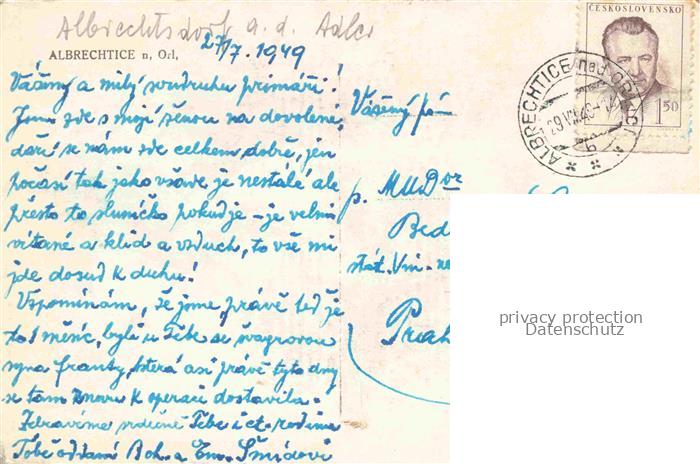 Albrechtsdorf a. d. Adler
ALBRECHTICE n. Orl.
27/7. 1949
Vážený a milý soudruhu primáři!
Jsme zde s mojí ženou na dovolené,
daří se nám zde celkem dobře, jen
počasí tak jako všude je nestálé ale
přesto to sluníčko pokud je – je velmi
vítané a klid a vzduch, to vše mi
jde dosud k duhu!
Vzpomínám, že jsme právě teď je
to 1 měsíc, byli u Tebe se švagrovou
syna Franty, která asi právě tyto dny
se tam znovu k operaci dostavila.
Zdravíme srdečně Tebe i ct. rodinu
Tobě oddaní Boh. a Em. Šmídovi
Vážený pán
p. MUDor
Bed
stát. Vin. ne
Prah
ČESKOSLOVENSKO
1.50
ALBRECHTICE nad ORLICÍ
b
privacy protection
Datenschutz